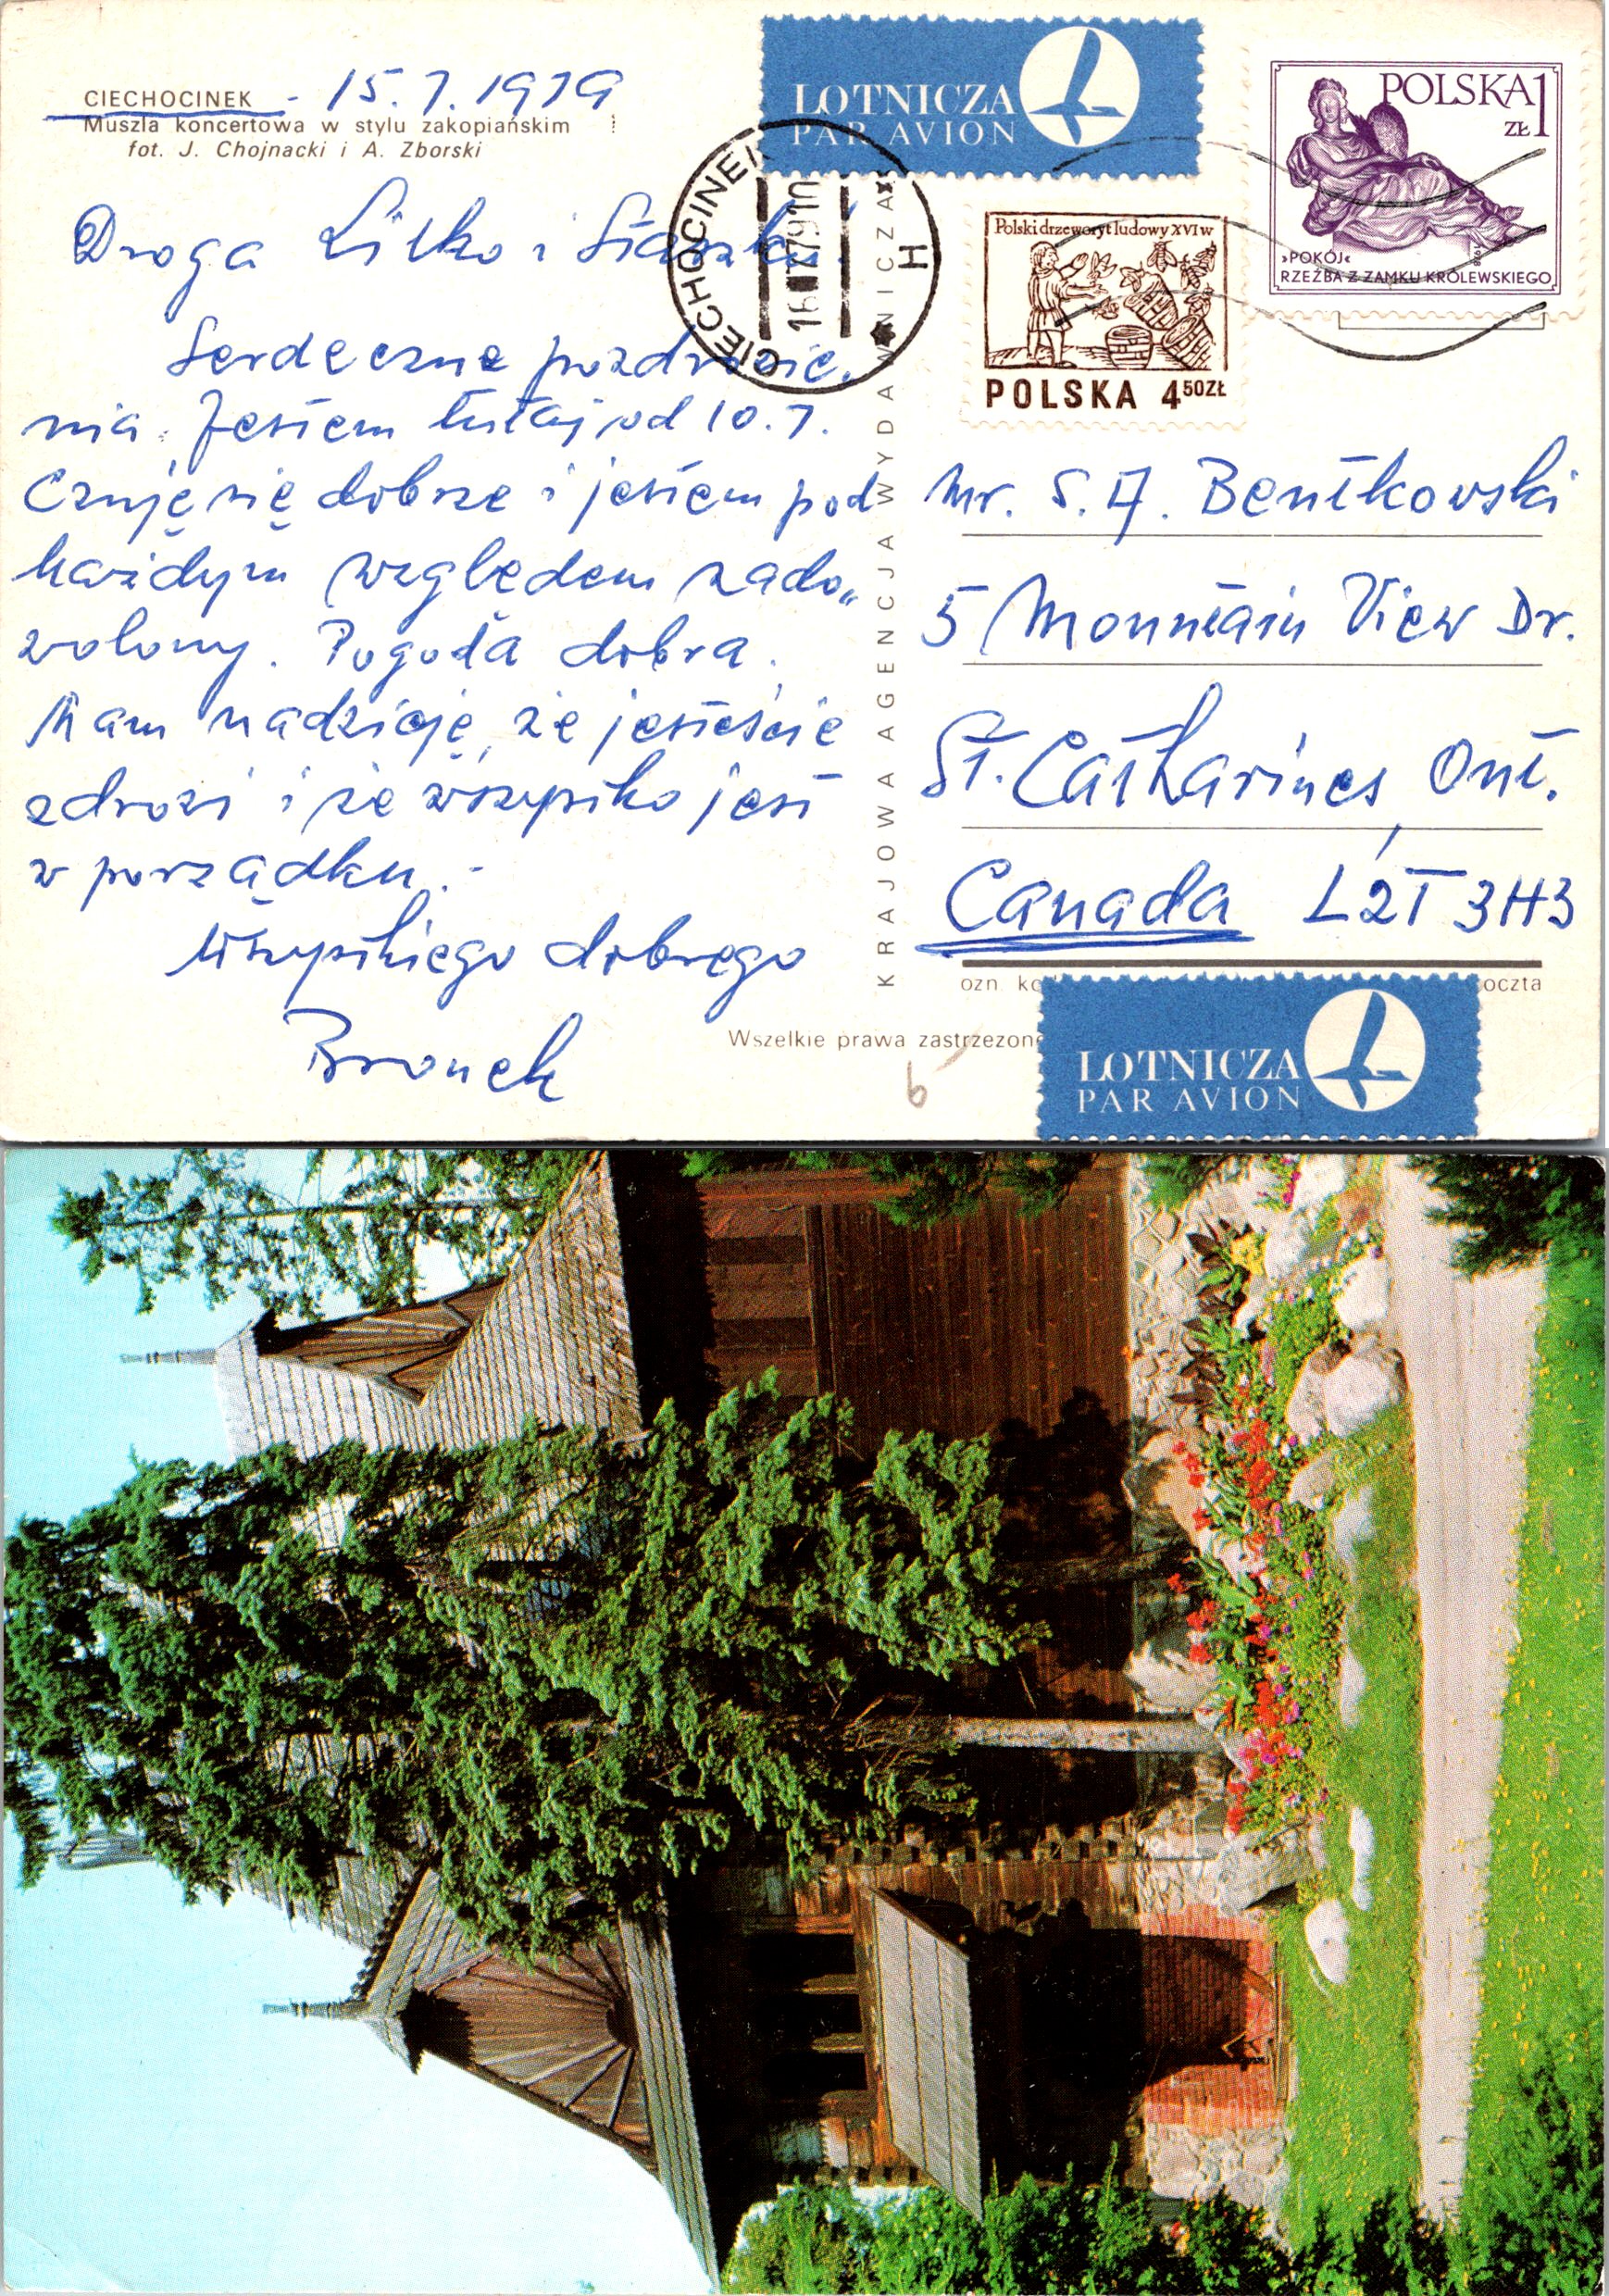 CIECHOCINEK - 15.7.1979
Muszla koncertowa w stylu zakopiańskim
fot. J. Chojnacki i A. Zborski
Droga Lilko i Staszku!
Serdeczne pozdrowie,
nia. Jestem tutaj od 10.7.
Czuję się dobrze i jestem pod
każdym względem zado„
wolony. Pogoda dobra.
Mam nadzieję, że jesteście
zdrowi i że wszystko jest
w porządku.-
Wszystkiego dobrego
Bronek
LOTNICZA
PAR AVION
CIECHOCINEK
16 VII 79 10
H
POLSKA 1
ZŁ
»POKÓJ«
RZEŹBA Z ZAMKU KRÓLEWSKIEGO
Polski drzeworyt ludowy XVI w
POLSKA 4 50 ZŁ
KRAJOWA AGENCJA WYDAWNICZA
Mr. S. A. Bentkowski
5 Mountain View Dr.
St. Catharines, Ont.
Canada L2T 3H3
ozn. poczta
Wszelkie prawa zastrzeżone
6
LOTNICZA
PAR AVION